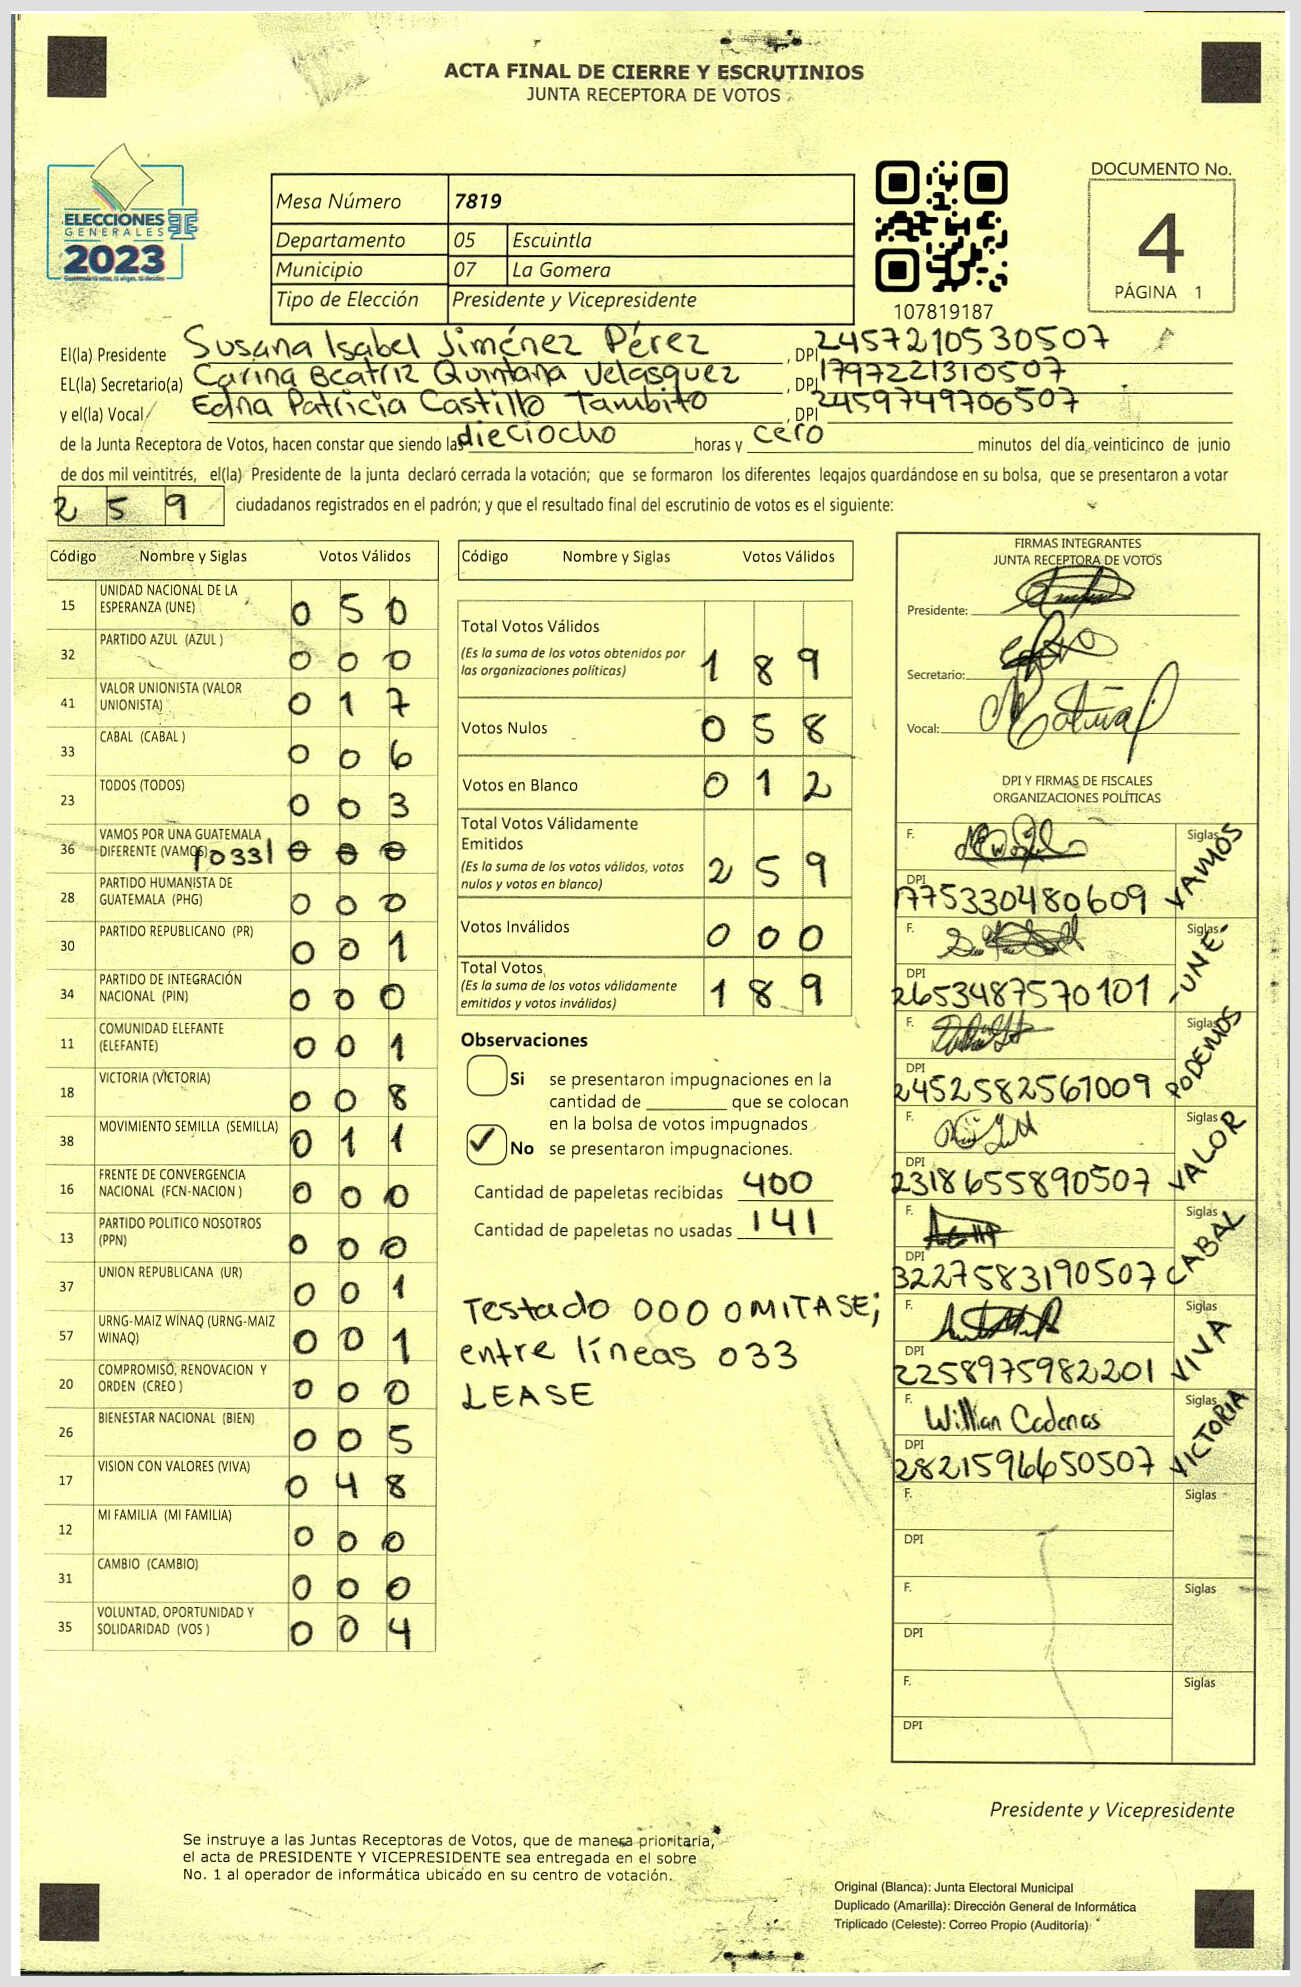 ACTA FINAL DE CIERRE Y ESCRUTINIOS
JUNTA RECEPTORA DE VOTOS
ELECCIONES
GENERALES
2023
Mesa Número 7819
Departamento 05 Escuintla
Municipio 07 La Gomera
Tipo de Elección Presidente y Vicepresidente
107819187
DOCUMENTO No.
4
PÁGINA 1
El(la) Presidente Susana Isabel Jiménez Pérez, DPI 2457210530507
EL(la) Secretario(a) Carina Beatriz Quintana Velasquez, DPI 1797221310507
y el(la) Vocal Edna Patricia Castillo Tambito, DPI 2459749706507
de la Junta Receptora de Votos, hacen constar que siendo las dieciocho horas y cero minutos del día, veinticinco de junio
de dos mil veintitrés, el(la) Presidente de la junta declaró cerrada la votación; que se formaron los diferentes legajos guardándose en su bolsa, que se presentaron a votar
259 ciudadanos registrados en el padrón; y que el resultado final del escrutinio de votos es el siguiente:
Código Nombre y Siglas Votos Válidos
15 UNIDAD NACIONAL DE LA
ESPERANZA (UNE) 0 5 0
32 PARTIDO AZUL (AZUL) 0 0 0
41 VALOR UNIONISTA (VALOR
UNIONISTA) 0 1 7
33 CABAL (CABAL) 0 0 6
23 TODOS (TODOS) 0 0 3
36 VAMOS POR UNA GUATEMALA
DIFERENTE (VAMOS) /033/ 0 0 0
28 PARTIDO HUMANISTA DE
GUATEMALA (PHG) 0 0 0
30 PARTIDO REPUBLICANO (PR) 0 0 1
34 PARTIDO DE INTEGRACIÓN
NACIONAL (PIN) 0 0 0
11 COMUNIDAD ELEFANTE
(ELEFANTE) 0 0 1
18 VICTORIA (VICTORIA) 0 0 8
38 MOVIMIENTO SEMILLA (SEMILLA) 0 1 1
16 FRENTE DE CONVERGENCIA
NACIONAL (FCN-NACION) 0 0 0
13 PARTIDO POLITICO NOSOTROS
(PPN) 0 0 0
37 UNION REPUBLICANA (UR) 0 0 1
57 URNG-MAIZ WINAQ (URNG-MAIZ
WINAQ) 0 0 1
20 COMPROMISO, RENOVACION Y
ORDEN (CREO) 0 0 0
26 BIENESTAR NACIONAL (BIEN) 0 0 5
17 VISION CON VALORES (VIVA) 0 4 8
12 MI FAMILIA (MI FAMILIA) 0 0 0
31 CAMBIO (CAMBIO) 0 0 0
35 VOLUNTAD, OPORTUNIDAD Y
SOLIDARIDAD (VOS) 0 0 4
Código Nombre y Siglas Votos Válidos
Total Votos Válidos
(Es la suma de los votos obtenidos por
las organizaciones políticas) 1 8 9
Votos Nulos 0 5 8
Votos en Blanco 0 1 2
Total Votos Válidamente
Emitidos
(Es la suma de los votos válidos, votos
nulos y votos en blanco) 2 5 9
Votos Inválidos 0 0 0
Total Votos
(Es la suma de los votos válidamente
emitidos y votos inválidos) 1 8 9
Observaciones
Si se presentaron impugnaciones en la
cantidad de ________ que se colocan
en la bolsa de votos impugnados
No se presentaron impugnaciones.
Cantidad de papeletas recibidas 400
Cantidad de papeletas no usadas 141
Testado 000 OMITASE;
entre líneas 033
LEASE
FIRMAS INTEGRANTES
JUNTA RECEPTORA DE VOTOS
Presidente:
Secretario:
Vocal:
DPI Y FIRMAS DE FISCALES
ORGANIZACIONES POLÍTICAS
F. Siglas VAMOS
DPI 1775330480609
F. Siglas UNE
DPI 2653487570101
F. Siglas PODEMOS
DPI 2452582561009
F. Siglas VALOR
DPI 2318655890507
F. Siglas CABAL
DPI 3227583190507
F. Siglas VIVA
DPI 2258975982201
F. Willian Cadenas Siglas VICTORIA
DPI 2821596650507
F. Siglas
DPI
F. Siglas
DPI
F. Siglas
DPI
Presidente y Vicepresidente
Se instruye a las Juntas Receptoras de Votos, que de manera prioritaria,
el acta de PRESIDENTE Y VICEPRESIDENTE sea entregada en el sobre
No. 1 al operador de informática ubicado en su centro de votación.
Original (Blanca): Junta Electoral Municipal
Duplicado (Amarilla): Dirección General de Informática
Triplicado (Celeste): Correo Propio (Auditoría)